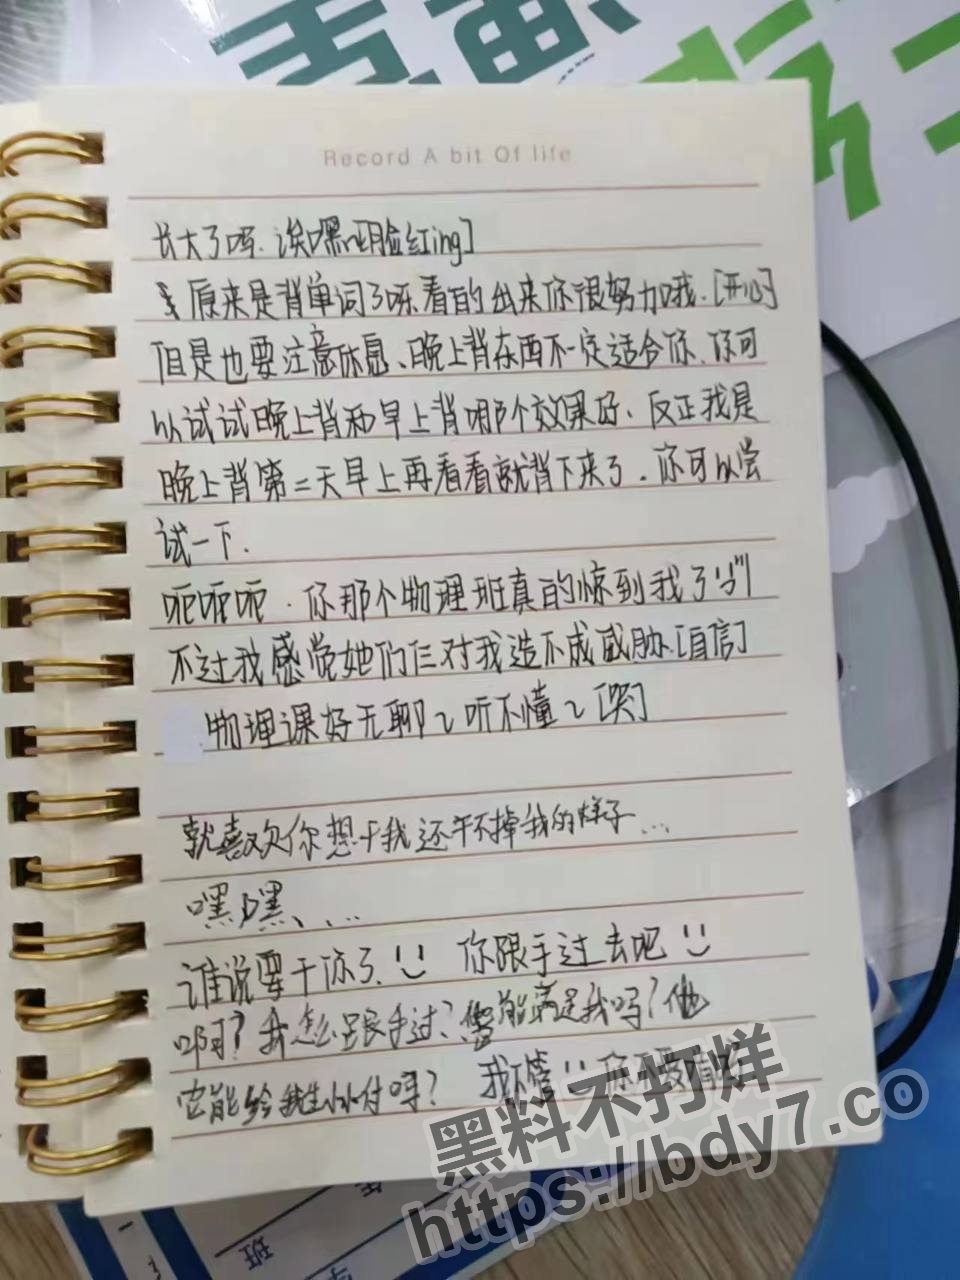 Record A bit Of life
长大了吗.诶嘿[脸红ing]
原来是背单词了呀.看的出来你很努力哦.[开心]
但是也要注意休息、晚上背东西不一定适合你.你可
以试试晚上背和早上背哪个效果好、反正我是
晚上背第二天早上再看看就背下来了.你可以尝
试一下.
呃呃呃.你那个物理班真的惊到我了
不过我感觉她们仨对我造不成威胁.[自信]
物理课好无聊~听不懂~[哭]
就喜欢你想干我还干不掉我的样子...
嘿嘿、...
谁说要干你了 你跟手过去吧
啊?我怎么跟手过? 能满足我吗?他
它能给我生小小付吗? 我不管 你不要
黑料不打烊
https://bdy7.co
班